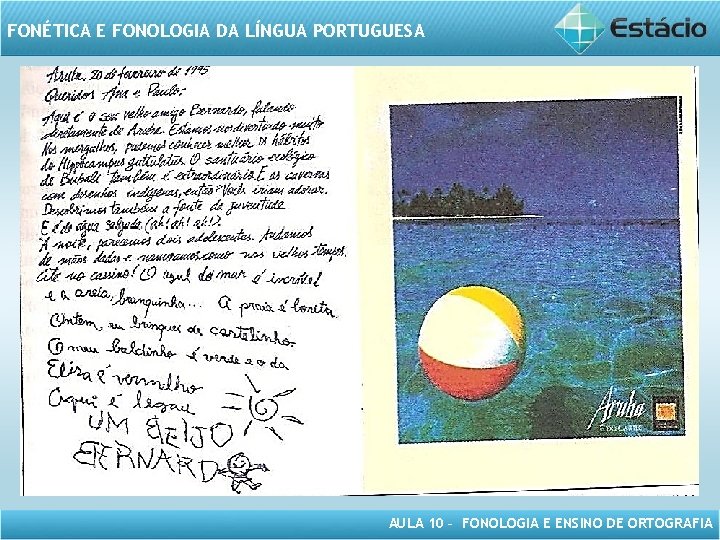 FONÉTICA E FONOLOGIA DA LÍNGUA PORTUGUESA
Estácio
Aruba, 20 de fevereiro de 1995
Queridos Ana e Paulo,
Aqui é o seu velho amigo Bernardo, falando
diretamente de Aruba. Estamos nos divertindo muito
Nos mergulhos, podemos conhecer melhor os hábitos
do Hippocampus guttulatus. O santuário ecológico
de Bubali também é extraordinário. E as cavernas
com desenhos indígenas, então? Vocês iriam adorar.
Descobrimos também a fonte da juventude
E é de água salgada (ah! ah! ah!).
À noite, parecemos dois adolescentes. Andamos
de mãos dadas e namoramos como nos velhos tempos.
Até no cassino! O azul do mar é incrível
e a areia, branquinha... A praia é bonita.
Ontem, eu brinquei de castelinho
O meu baldinho é verde e o da
Elisa é vermelho
Aqui é legau
UM BEIJO
BERNARDO
Aruba
AULA 10 – FONOLOGIA E ENSINO DE ORTOGRAFIA